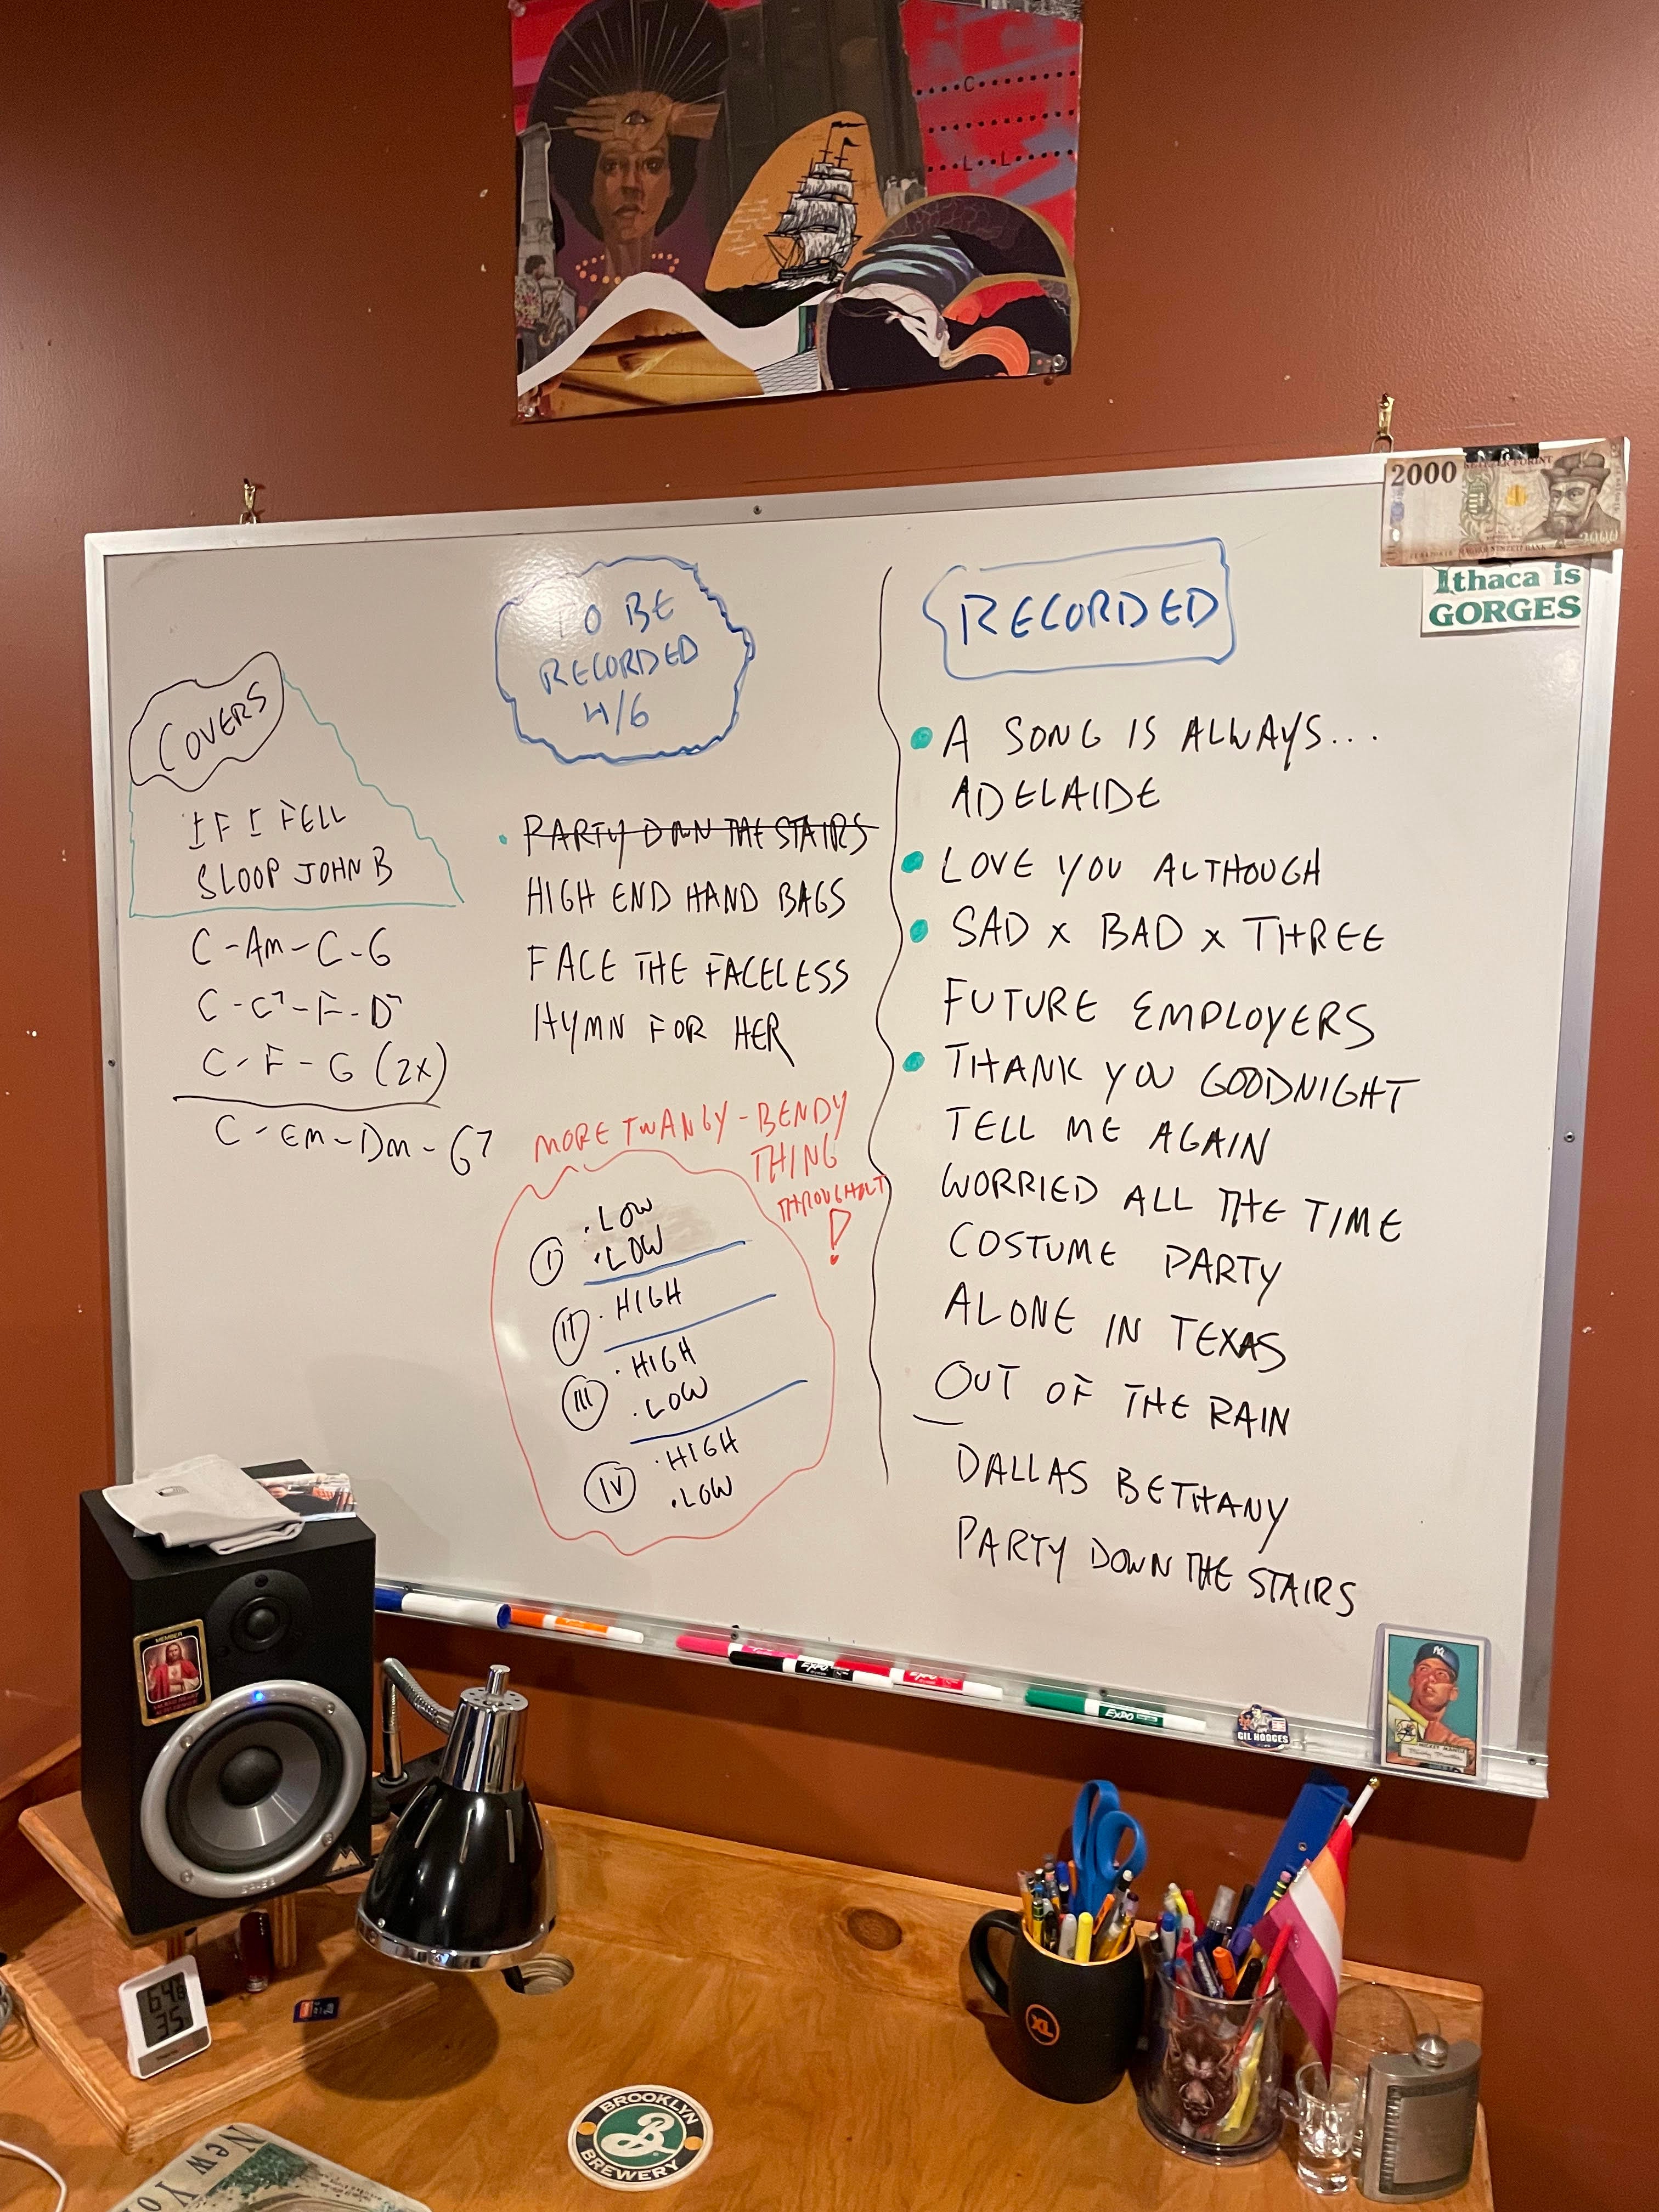 C
L L
2000
MAGYAR NEMZETI BANK
2000
Ithaca is
GORGES
COVERS
IF I FELL
SLOOP JOHN B
C-Am-C-G
C-C7-F-D7
C-F-G (2X)
C-Em-Dm-G7
TO BE
RECORDED
4/6
PARTY DOWN THE STAIRS
HIGH END HAND BAGS
FACE THE FACELESS
HYMN FOR HER
MORE TWANGY-BENDY
THING
THROUGHOUT
!
I
• LOW
• LOW
II • HIGH
III
• HIGH
• LOW
IV
• HIGH
• LOW
RECORDED
• A SONG IS ALWAYS...
ADELAIDE
• LOVE YOU ALTHOUGH
• SAD x BAD x THREE
FUTURE EMPLOYERS
• THANK YOU GOODNIGHT
TELL ME AGAIN
WORRIED ALL THE TIME
COSTUME PARTY
ALONE IN TEXAS
OUT OF THE RAIN
DALLAS BETHANY
PARTY DOWN THE STAIRS
MEMBER
EXPO
EXPO
EXPO
GIL HODGES
NY
MICKEY MANTLE
XL
BROOKLYN
B
BREWERY
New Yo